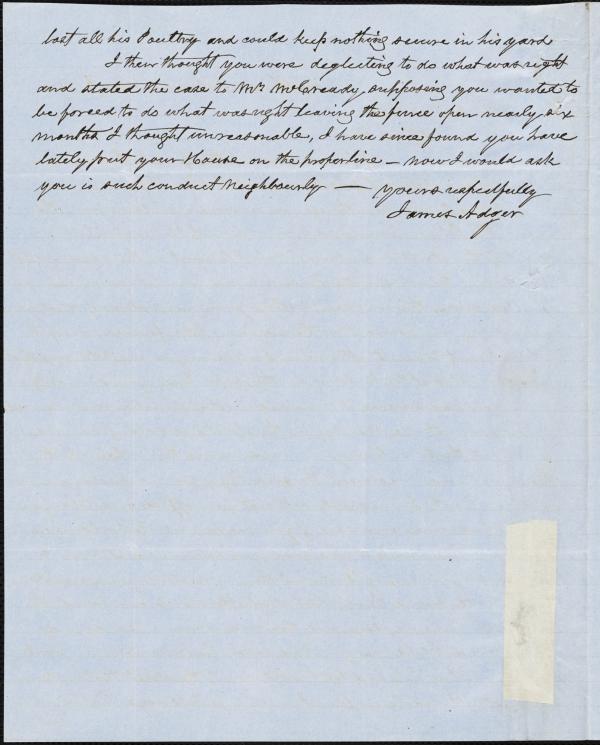 lost all his Poultry and could keep nothing secure in his yard
I then thought you were neglecting to do what was right
and stated the case to Mr McCready, supposing you wanted to
be forced to do what was right leaving the fence open nearly six
months I thought unreasonable, I have since found you have
lately put your House on the proper line – now I would ask
you is such conduct Neighbourly — yours respectfully
James Adger